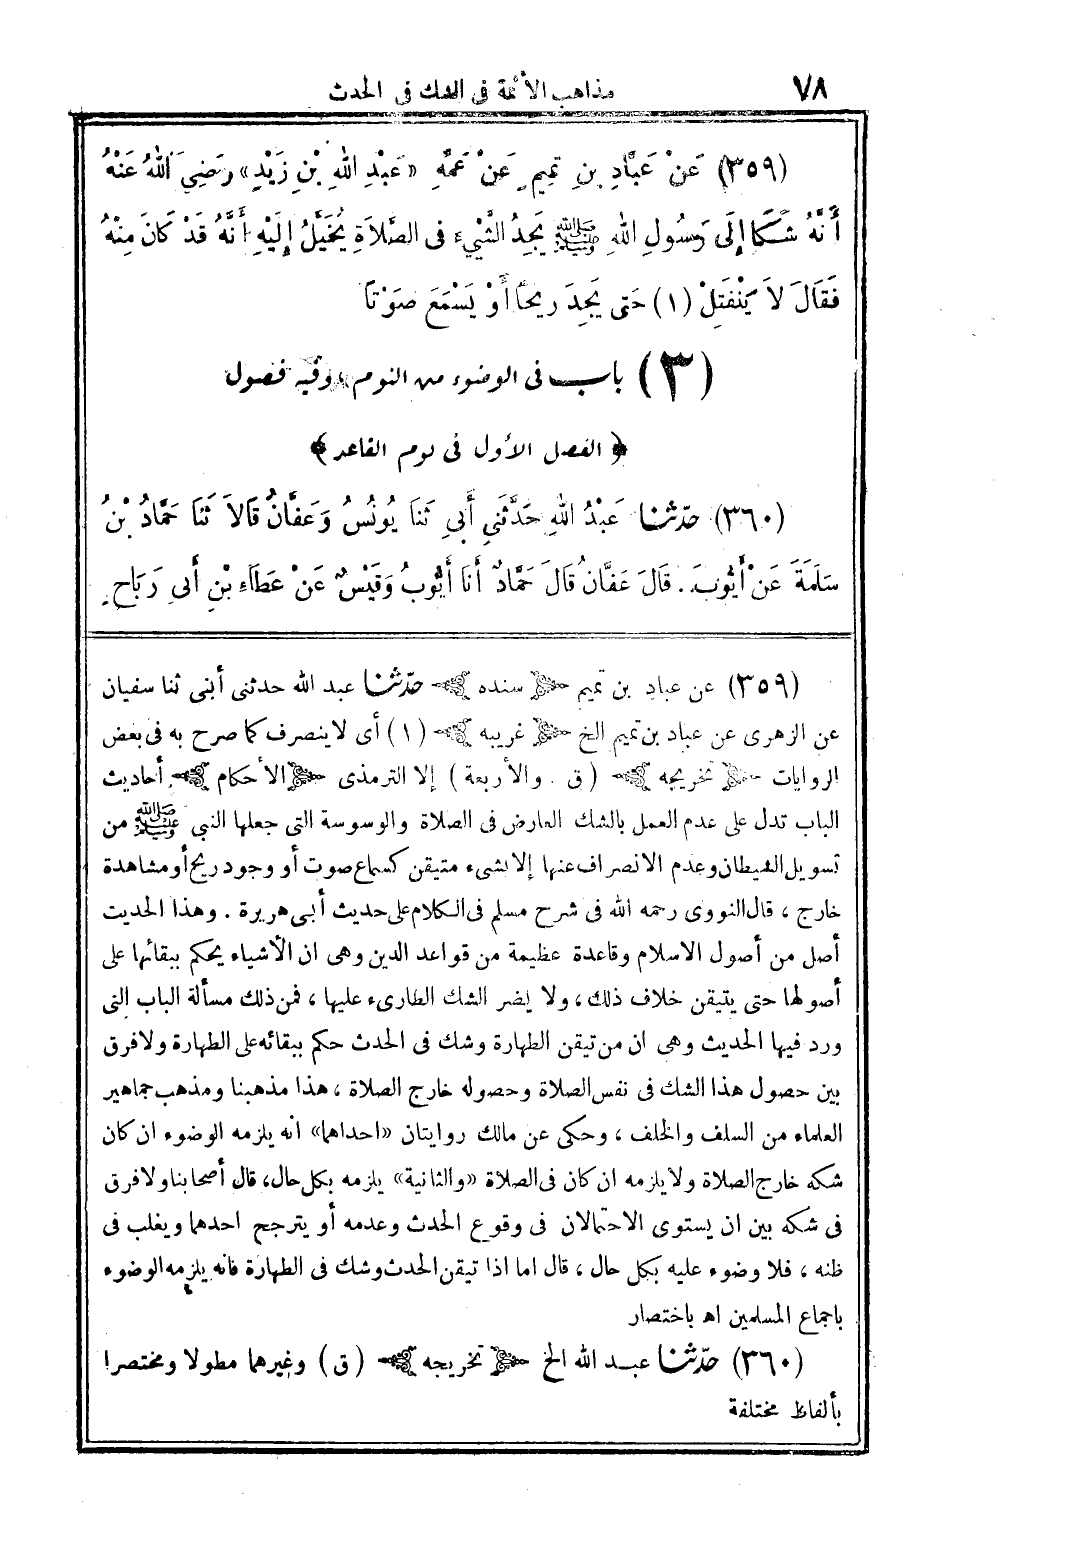 ٧٨ مذاهب الأئمة فى الشك فى الحدث
(٣٥٩) عَنْ عَبَّادِ بنِ تَمِيمٍ عَنْ عَمِّهِ «عَبْدِ اللهِ بْنِ زَيْدٍ» رَضِيَ اللهُ عَنْهُ
أَنَّهُ شَكَا إِلَى رَسُولِ اللهِ ﷺ يَجِدُ الشَّيْءَ فى الصَّلَاةِ يُخَيَّلُ إِلَيْهِ أَنَّهُ قَدْ كَانَ مِنْهُ
فَقَالَ لاَ يَنْفَتِلْ (١) حَتى يَجِدَ رِيحًا أَوْ يَسْمَعَ صَوْتاً
(٣) باب فى الوضوء من النوم وفيه فصول
﴿ الفصل الأول فى نوم القاعد ﴾
(٣٦٠) حدّثنا عَبْدُ اللهِ حَدَّثَنِي أَبِي ثَنَا يُونُسُ وَعَفَّانُ قَالاَ ثَنَا حَمَّادُ بْنُ
سَلَمَةَ عَنْ أَيُّوبَ . قَالَ عَفَّانُ قَالَ حَمَّادٌ أَنَا أَيُّوبُ وَقَيْسٌ عَنْ عَطَاءِ بْنِ أَبِى رَبَاحٍ
(٣٥٩) عن عباد بن تميم ﴿ سنده ﴾ حدّثنا عبد الله حدثنى أبى ثنا سفيان
عن الزهرى عن عباد بن تميم الخ ﴿ غريبه ﴾ (١) أى لا ينصرف كما صرح به فى بعض
الروايات ﴿ تخريجه ﴾ (ق . والأربعة) إلا الترمذى ﴿ الأحكام ﴾ أحاديث
الباب تدل على عدم العمل بالشك العارض فى الصلاة والوسوسة التى جعلها النبي ﷺ من
تسويل الشيطان وعدم الانصراف عنها إلا بشىء متيقن كسماع صوت أو وجود ريح أو مشاهدة
خارج ، قال النووى رحمه الله فى شرح مسلم فى الكلام على حديث أبى هريرة . وهذا الحديث
أصل من أصول الاسلام وقاعدة عظيمة من قواعد الدين وهى ان الأشياء يحكم ببقائها على
أصولها حتى يتيقن خلاف ذلك ، ولا يضر الشك الطارىء عليها ، فمن ذلك مسألة الباب التى
ورد فيها الحديث وهى ان من تيقن الطهارة وشك فى الحدث حكم ببقائه على الطهارة ولا فرق
بين حصول هذا الشك فى نفس الصلاة وحصوله خارج الصلاة ، هذا مذهبنا ومذهب جماهير
العلماء من السلف والخلف ، وحكى عن مالك روايتان «احداهما» انه يلزمه الوضوء ان كان
شكه خارج الصلاة ولا يلزمه ان كان فى الصلاة «والثانية» يلزمه بكل حال، قال أصحابنا ولا فرق
فى شكه بين ان يستوى الاحتمالان فى وقوع الحدث وعدمه أو يترجح احدهما ويغلب فى
ظنه ، فلا وضوء عليه بكل حال ، قال اما اذا تيقن الحدث وشك فى الطهارة فانه يلزمه الوضوء
باجماع المسلمين اه باختصار
(٣٦٠) حدّثنا عبد الله الخ ﴿ تخريجه ﴾ (ق) وغيرهما مطولا ومختصرا
بألفاظ مختلفة